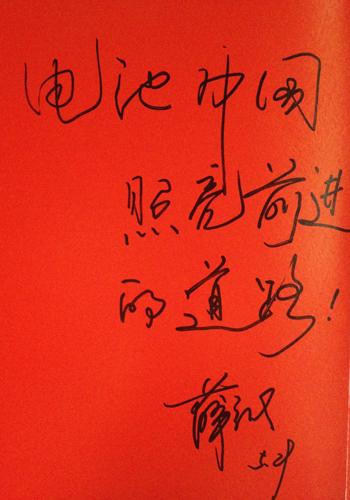 电池中国
照亮前进
的道路!
薛